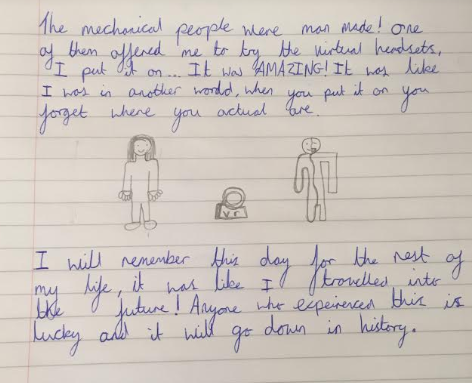 The mechanical people were man made! One
of them offered me to try the virtual headsets,
I put it on... It was AMAZING! It was like
I was in another world, when you put it on you
forget where you actual are.
V.r
I will remember this day for the rest of
my life, it was like I travelled into
the future! Anyone who experienced this is
lucky and it will go down in history.